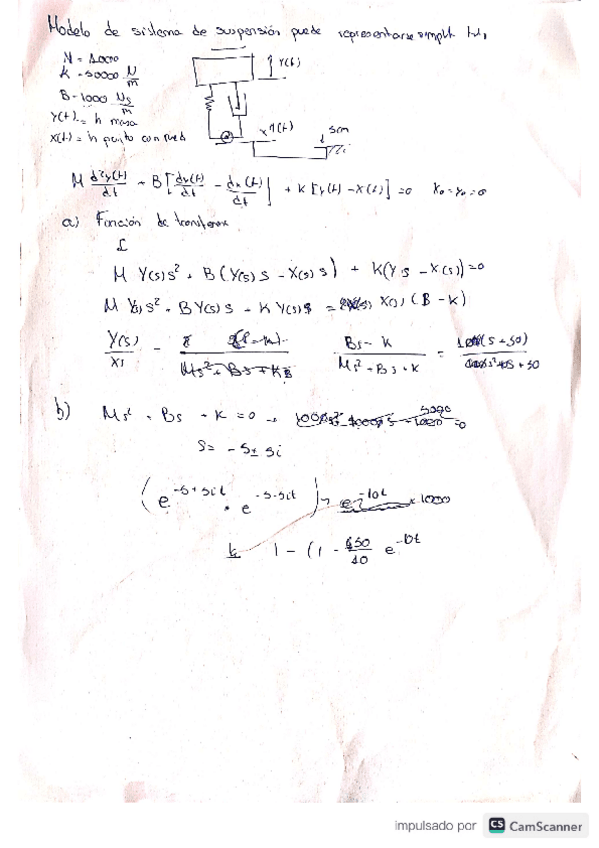 Modelo de sistema de suspensión puede representarse simpl
M = 1000
K = 50000 N/m
B = 1000 Ns/m
Y(t) = h masa
X(t) = h punto con rued
Y(t)
X(t)
5cm
M d²y(t)/dt + B[dy(t)/dt - dx(t)/dt] + K[y(t) - x(t)] = 0 x₀ = y₀ = 0
a) Función de transferen
L
M Y(s)s² + B(Y(s)s - X(s)s) + K(Ys - X(s)) = 0
M Y(s)s² + BY(s)s + KY(s) = X(s)(B - K)
Y(s)/Xs = Bs - K / Ms² + Bs + K =
b) Ms² + Bs + K = 0
S = -5± 5i
e^-10t × 1000
1 - (1 - e^-10t
impulsado por CS CamScanner